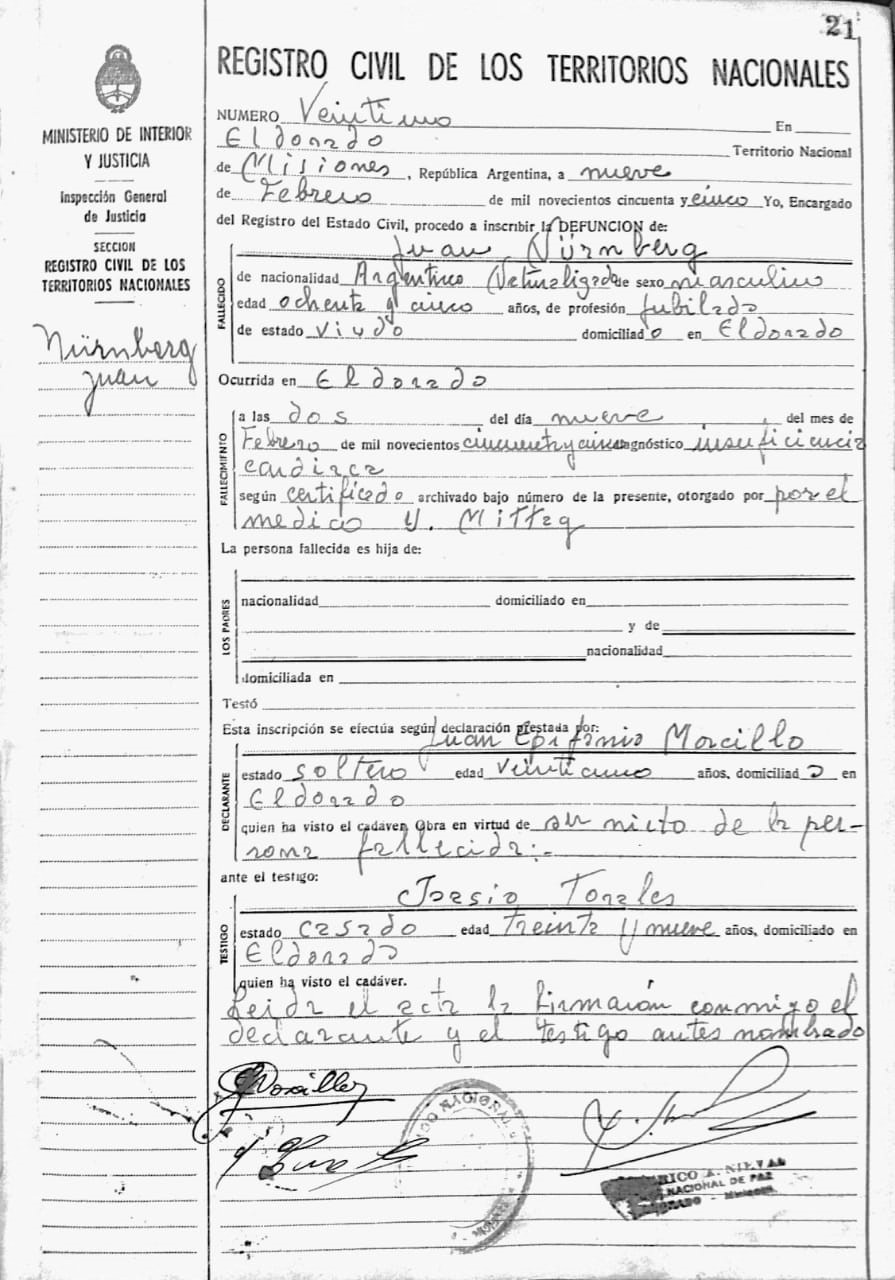 21
REGISTRO CIVIL DE LOS TERRITORIOS NACIONALES
MINISTERIO DE INTERIOR
Y JUSTICIA
Inspección General
de Justicia
SECCION
REGISTRO CIVIL DE LOS
TERRITORIOS NACIONALES
Nürnberg
Juan
NUMERO Veintiuno En
Eldorado Territorio Nacional
de Misiones, República Argentina, a nueve
de Febrero de mil novecientos cincuenta y cinco Yo, Encargado
del Registro del Estado Civil, procedo a inscribir la DEFUNCION de:
Juan Nürnberg
FALLECIDO
de nacionalidad Argentino (Naturalizado de sexo masculino
edad ochenta y cinco años, de profesión Jubilado
de estado viudo domiciliado en Eldorado
Ocurrida en Eldorado
FALLECIMIENTO
a las dos del día nueve, del mes de
Febrero de mil novecientos cincuenta y cinco diagnóstico insuficiencia
cardiaca
según certificado archivado bajo número de la presente, otorgado por por el
medico Y. Mittag
La persona fallecida es hija de:
LOS PADRES
nacionalidad domiciliado en
y de
nacionalidad
domiciliada en
Testó
Esta inscripción se efectúa según declaración prestada por:
Juan Epifanio Morcillo
DECLARANTE
estado soltero edad veintiuno años, domiciliado en
Eldorado
quien ha visto el cadáver. Obra en virtud de ser nieto de la per-
sona fallecida:-
ante el testigo:
Torales
TESTIGO
estado casado edad treinta y nueve años, domiciliado en
Eldorado
quien ha visto el cadáver.
Leida el acta la firmarón conmigo el
declarante y el testigo antes nombrado
Morcillo
NACIONAL DE PAZ
Misiones